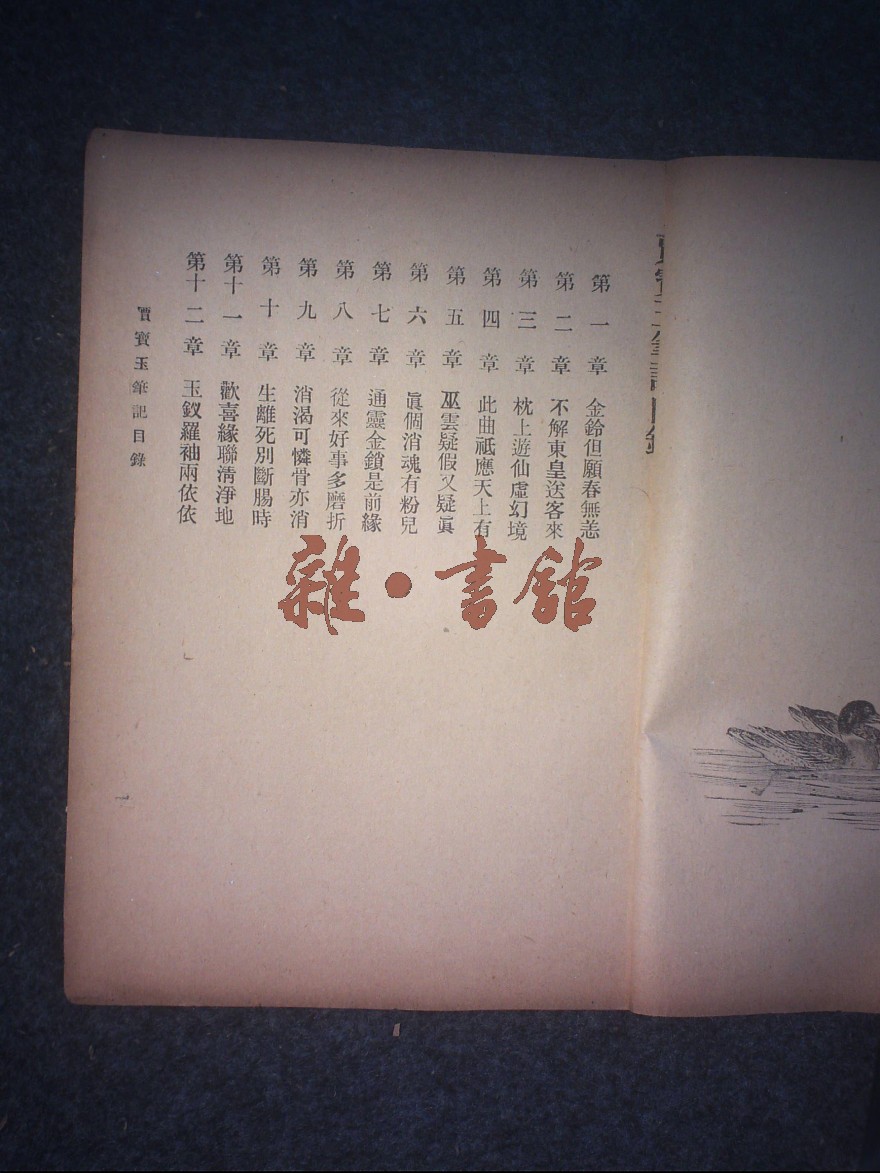 賈寶玉筆記目錄
第一章 金鈴但願春無恙
第二章 不解東皇送客來
第三章 枕上遊仙虛幻境
第四章 此曲祗應天上有
第五章 巫雲疑假又疑眞
第六章 眞個消魂有粉兒
第七章 通靈金鎖是前緣
第八章 從來好事多磨折
第九章 消渴可憐骨亦消
第十章 生離死別斷腸時
第十一章 歡喜緣聯淸淨地
第十二章 玉釵羅袖兩依依
賈寶玉筆記目錄
一
雜·書館